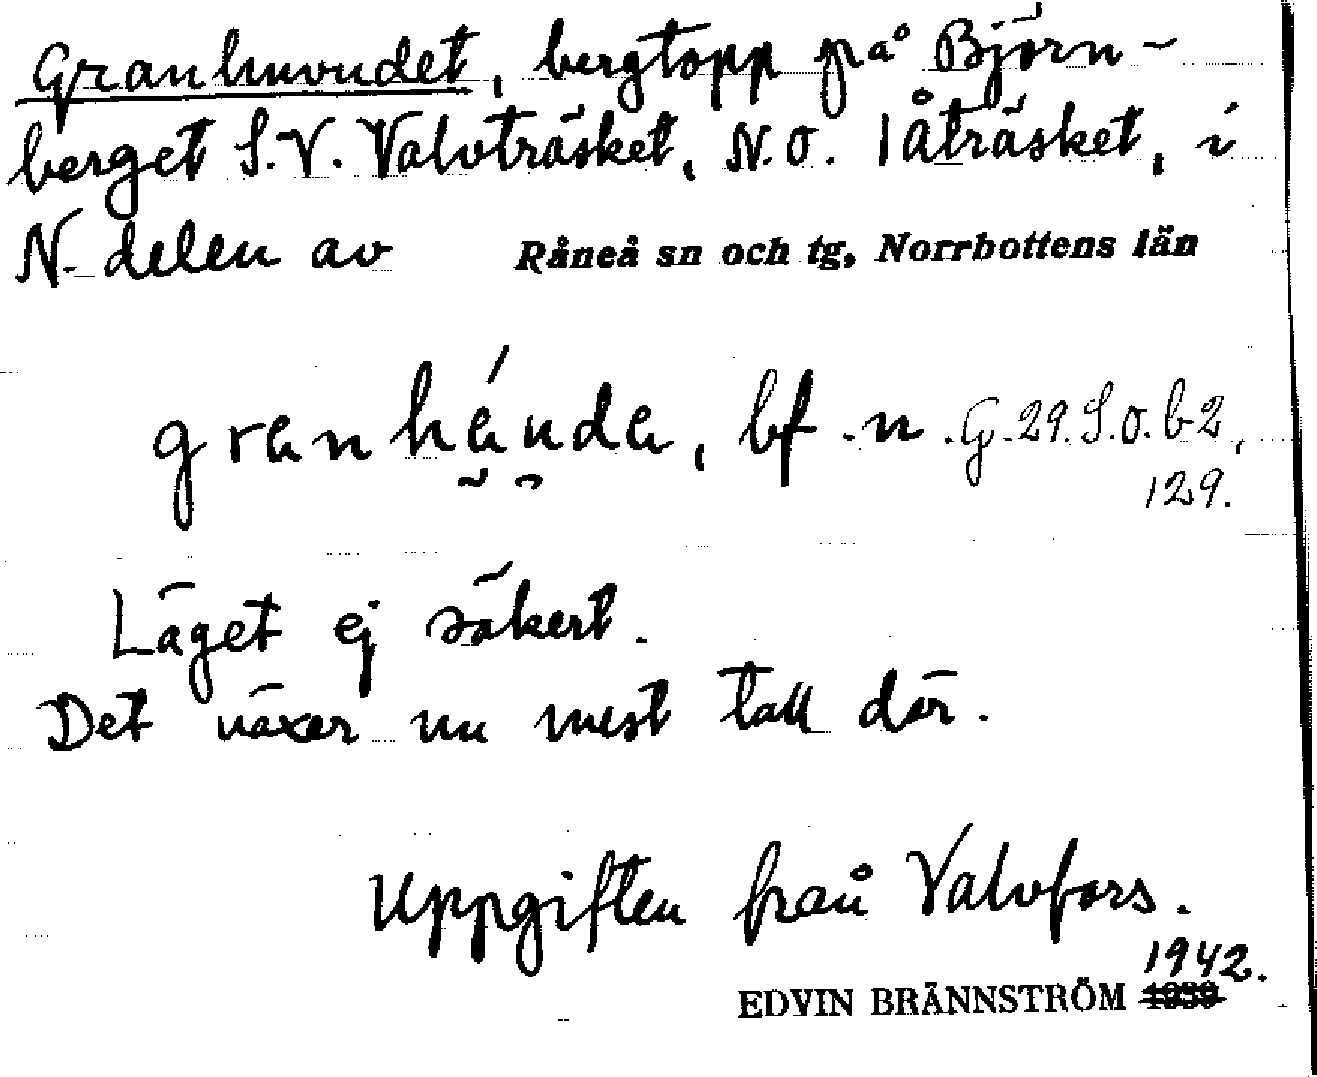 Granhuvudet, bergtopp på Björn-
berget S.V. Valvträsket, N.O. Låträsket, i
N. delen av Råneå sn och tg, Norrbottens län
granhánda, bf. n. G. 29. S.o. b2,
129.
Läget ej säkert.
Det växer nu mest tall där.
Uppgiften från Valvfors.
1942.
EDVIN BRÄNNSTRÖM 1939